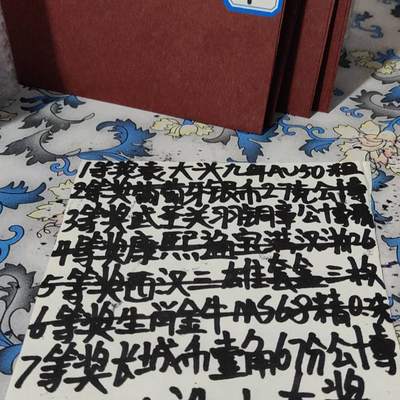 1等奖袁大头九年AU50
2等奖葡萄牙银币27克公博
3等奖 公博
4等奖康熙通宝满汉浙26
5等奖西汉三雄 三枚
6等奖生肖金牛MS68精
7等奖长城币壹角67分公博
奖